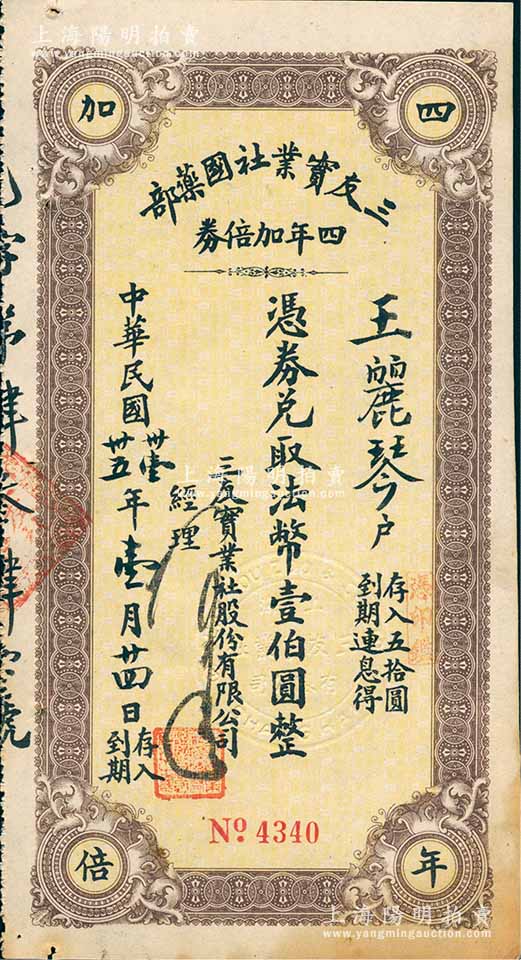 上海陽明拍賣
www.yangmingauction.com
四
加
三友實業社國藥部
四年加倍券
王麗琴戶
存入五拾圓
到期連息得
憑券兌取法幣壹伯圓整
三友實業社股份有限公司
經理
中華民國卅壹
卅五年壹月廿四日存入
到期
上海陽明拍賣
憑印鑑
№ 4340
年
倍
字第肆
肆
號
上海陽明拍賣
www.yangmingauction.com